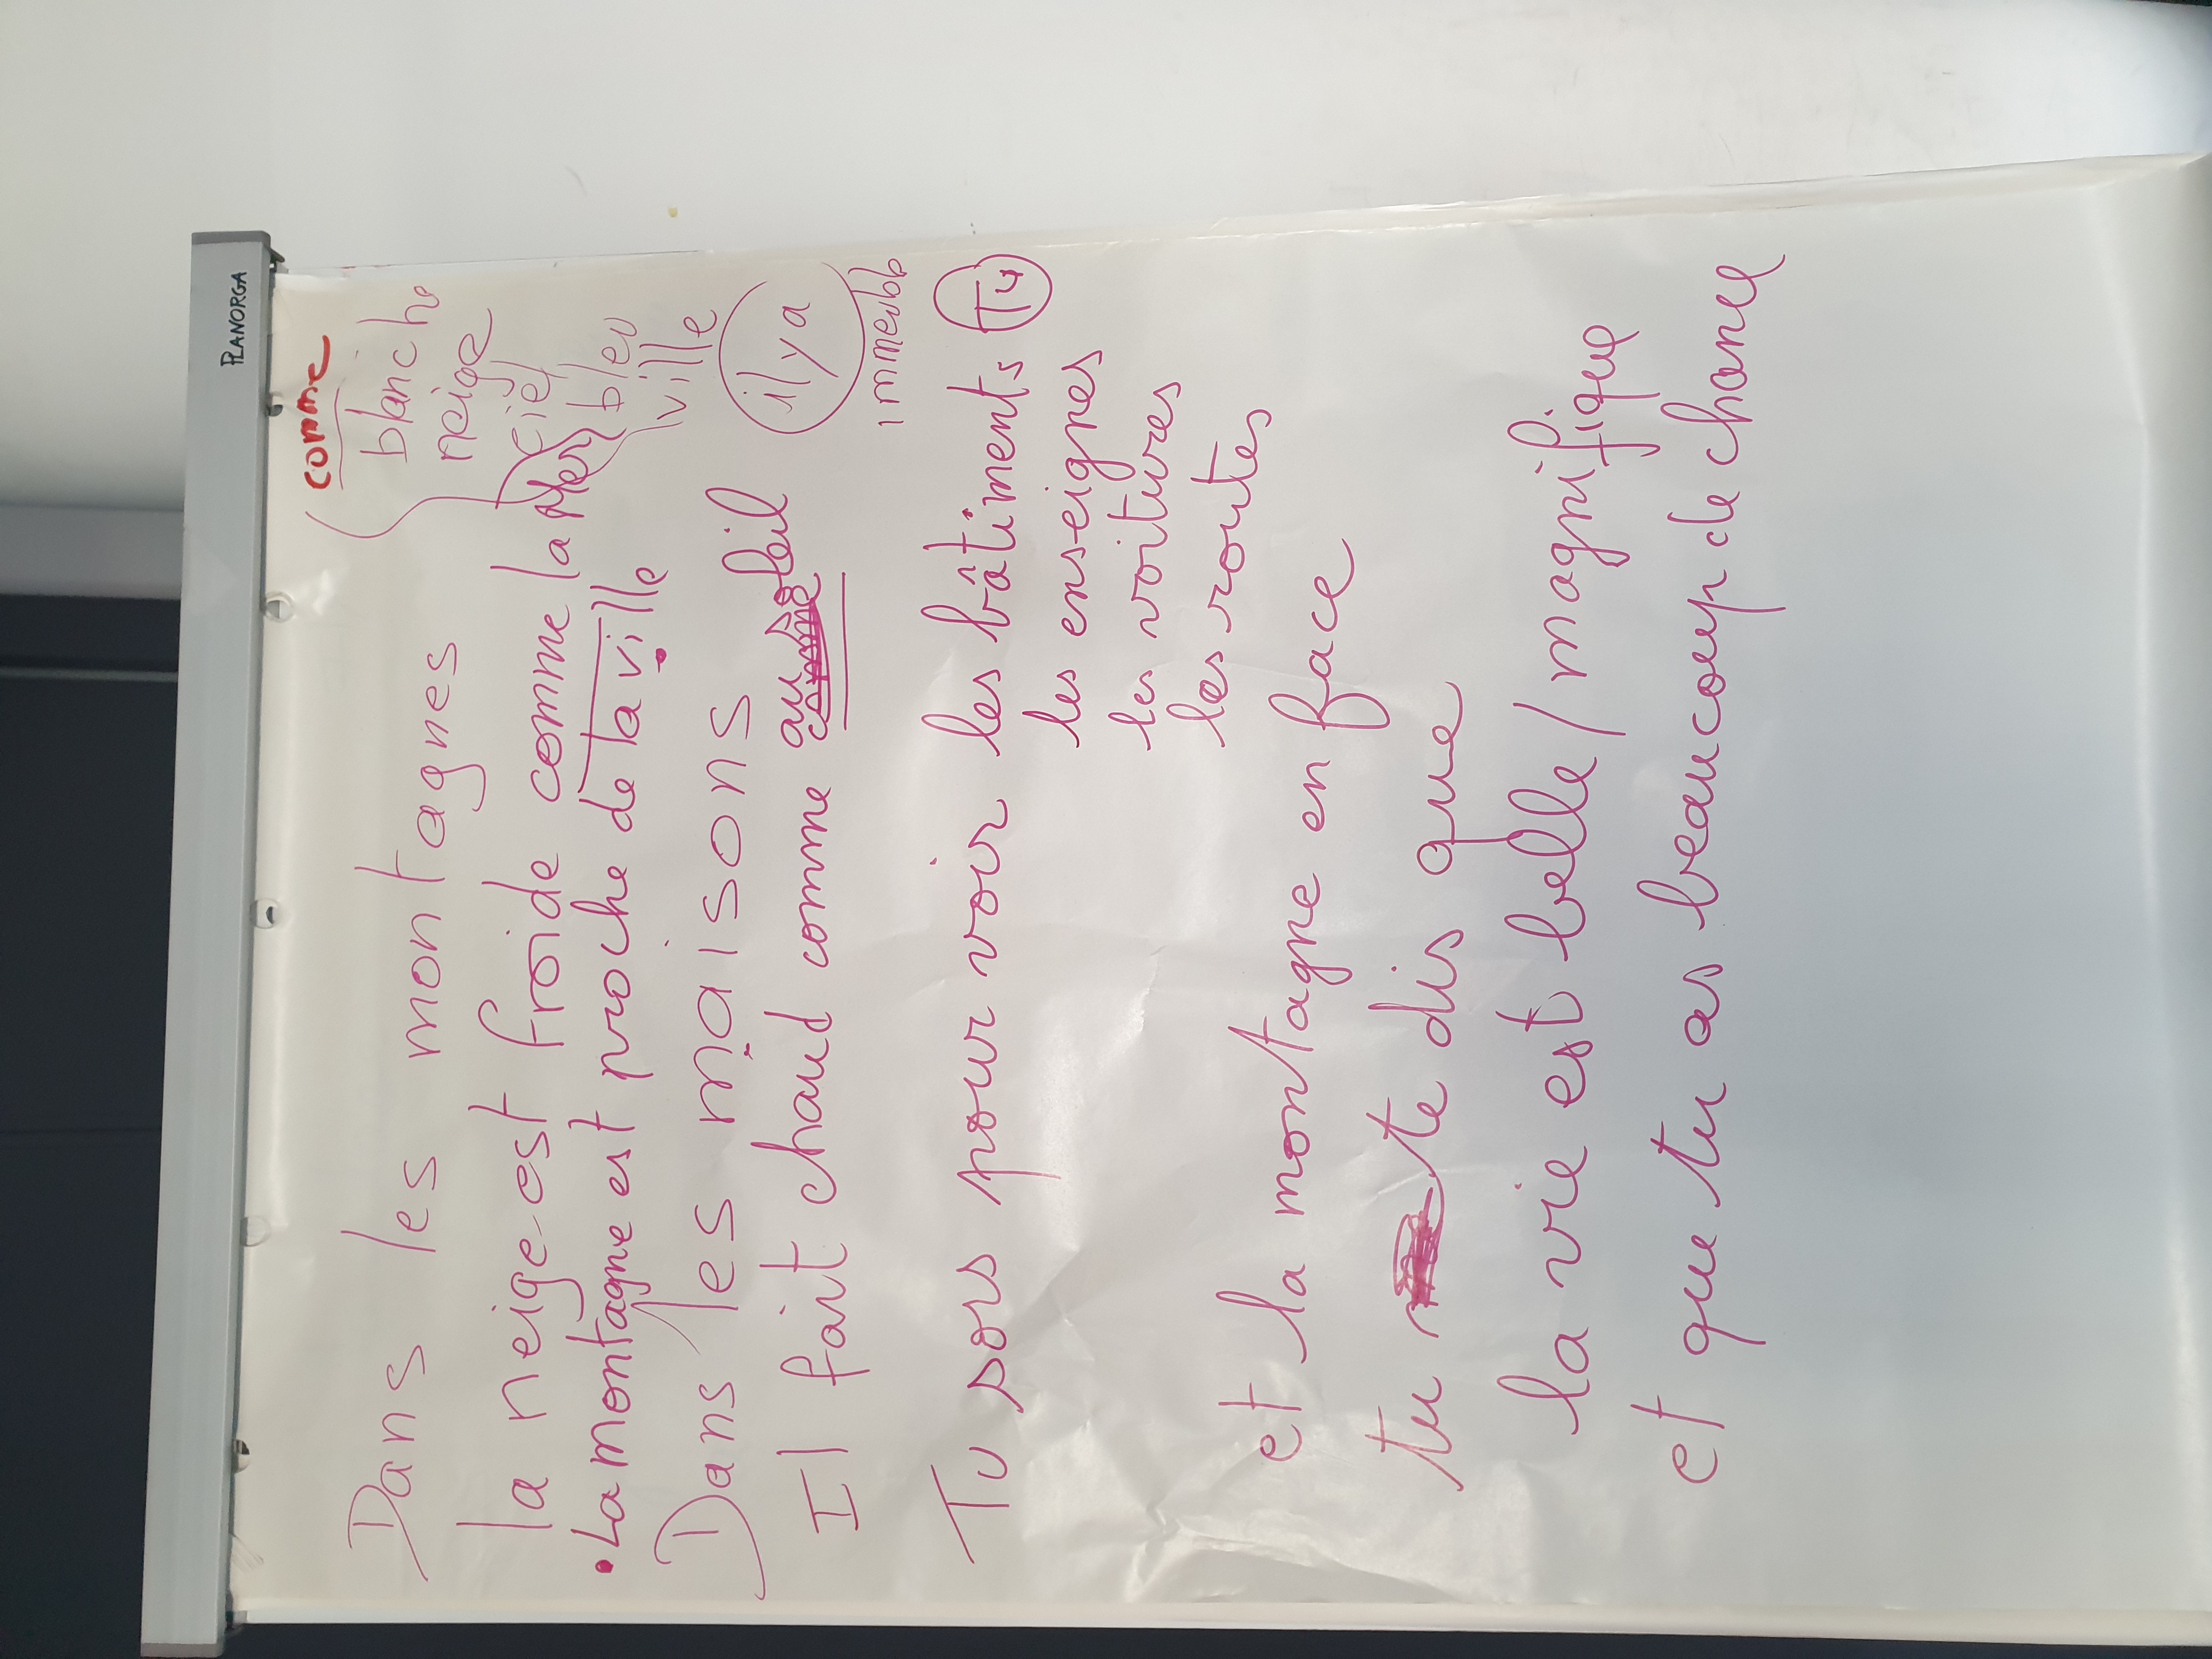 PLANORGA
comme
blanche
neige
ciel
bleu
ville
il y a
immeuble
Dans les montagnes
la neige est froide comme la Mer
• La montagne est proche de la ville
Dans les maisons
Il fait chaud comme au soleil
Tu sors pour voir les bâtiments Tu
les enseignes
les voitures
les routes
et la montagne en face
tu te dis que
la vie est belle / magnifique
et que tu as beaucoup de chance